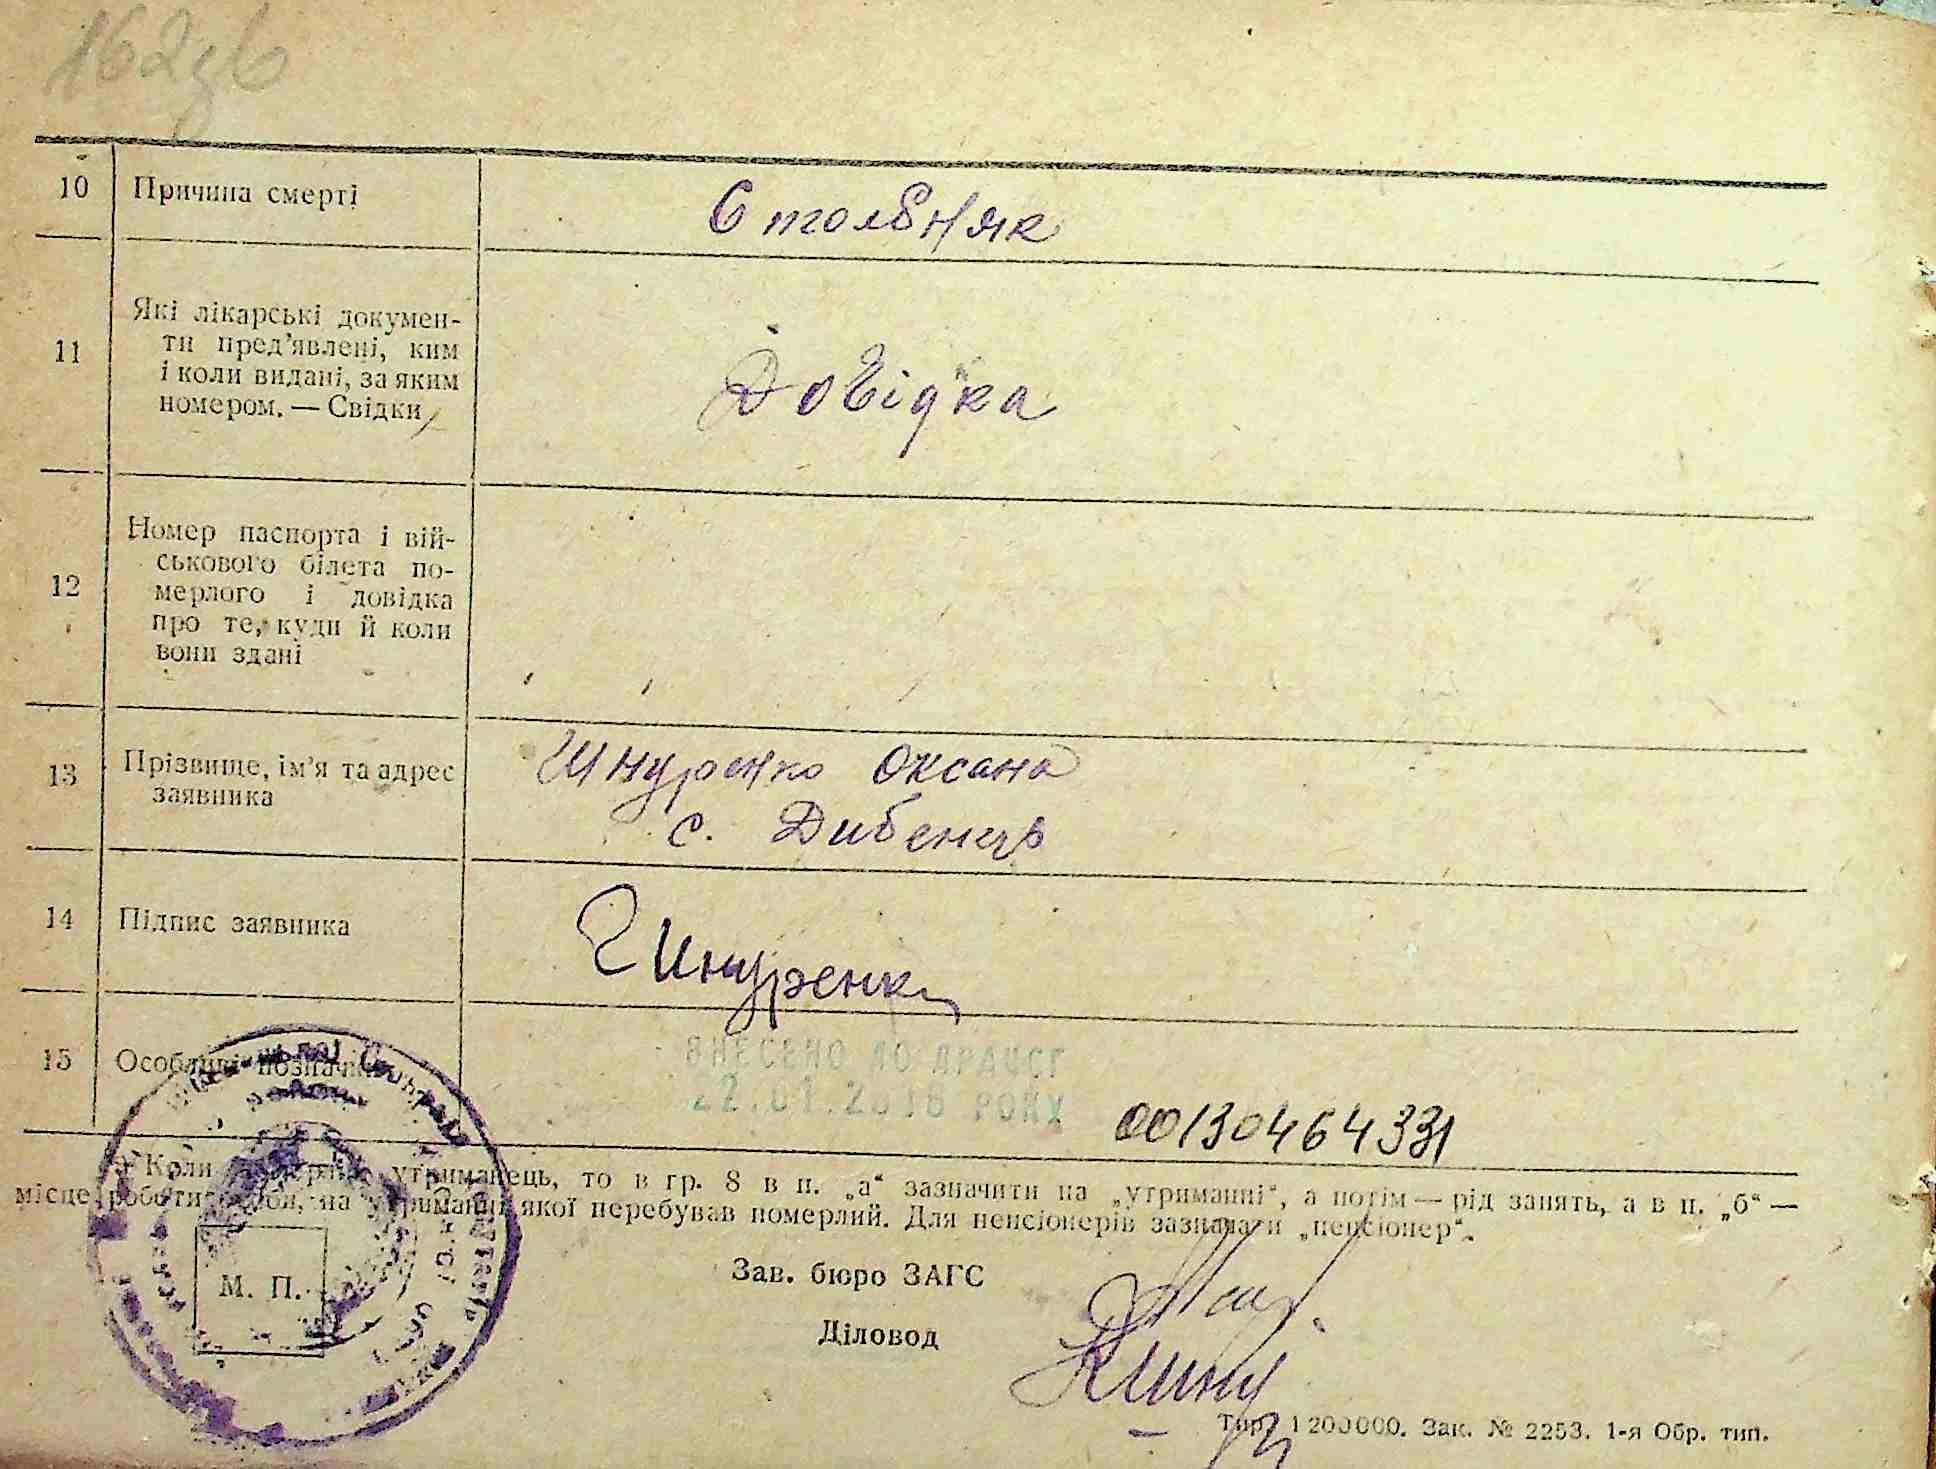 162зв
10 Причина смерті Столбняк
11 Які лікарські докумен-
ти пред'явлені, ким
і коли видані, за яким
номером. — Свідки
Довідка
12 Номер паспорта і вій-
ськового білета по-
мерлого і довідка
про те, куди й коли
вони здані
13 Прізвище, ім'я та адрес
заявника
Шнуренко Оксана
с. Дибенць
14 Підпис заявника Шнуренко
15 Особливі позначки
ВНЕСЕНО ДО ДРАЦСГ
22.01.2016 РОКУ
00130464331
Коли утриманець, то в гр. 8 в п. „а“ зазначити на „утриманні“, а потім — рід занять, а в п. „б“ —
місце роботи особи, на утриманні якої перебував померлий. Для пенсіонерів зазначати „пенсіонер“.
Зав. бюро ЗАГС
Діловод
М. П.
Тир. 1200000. Зак. № 2253. 1-я Обр. тип.